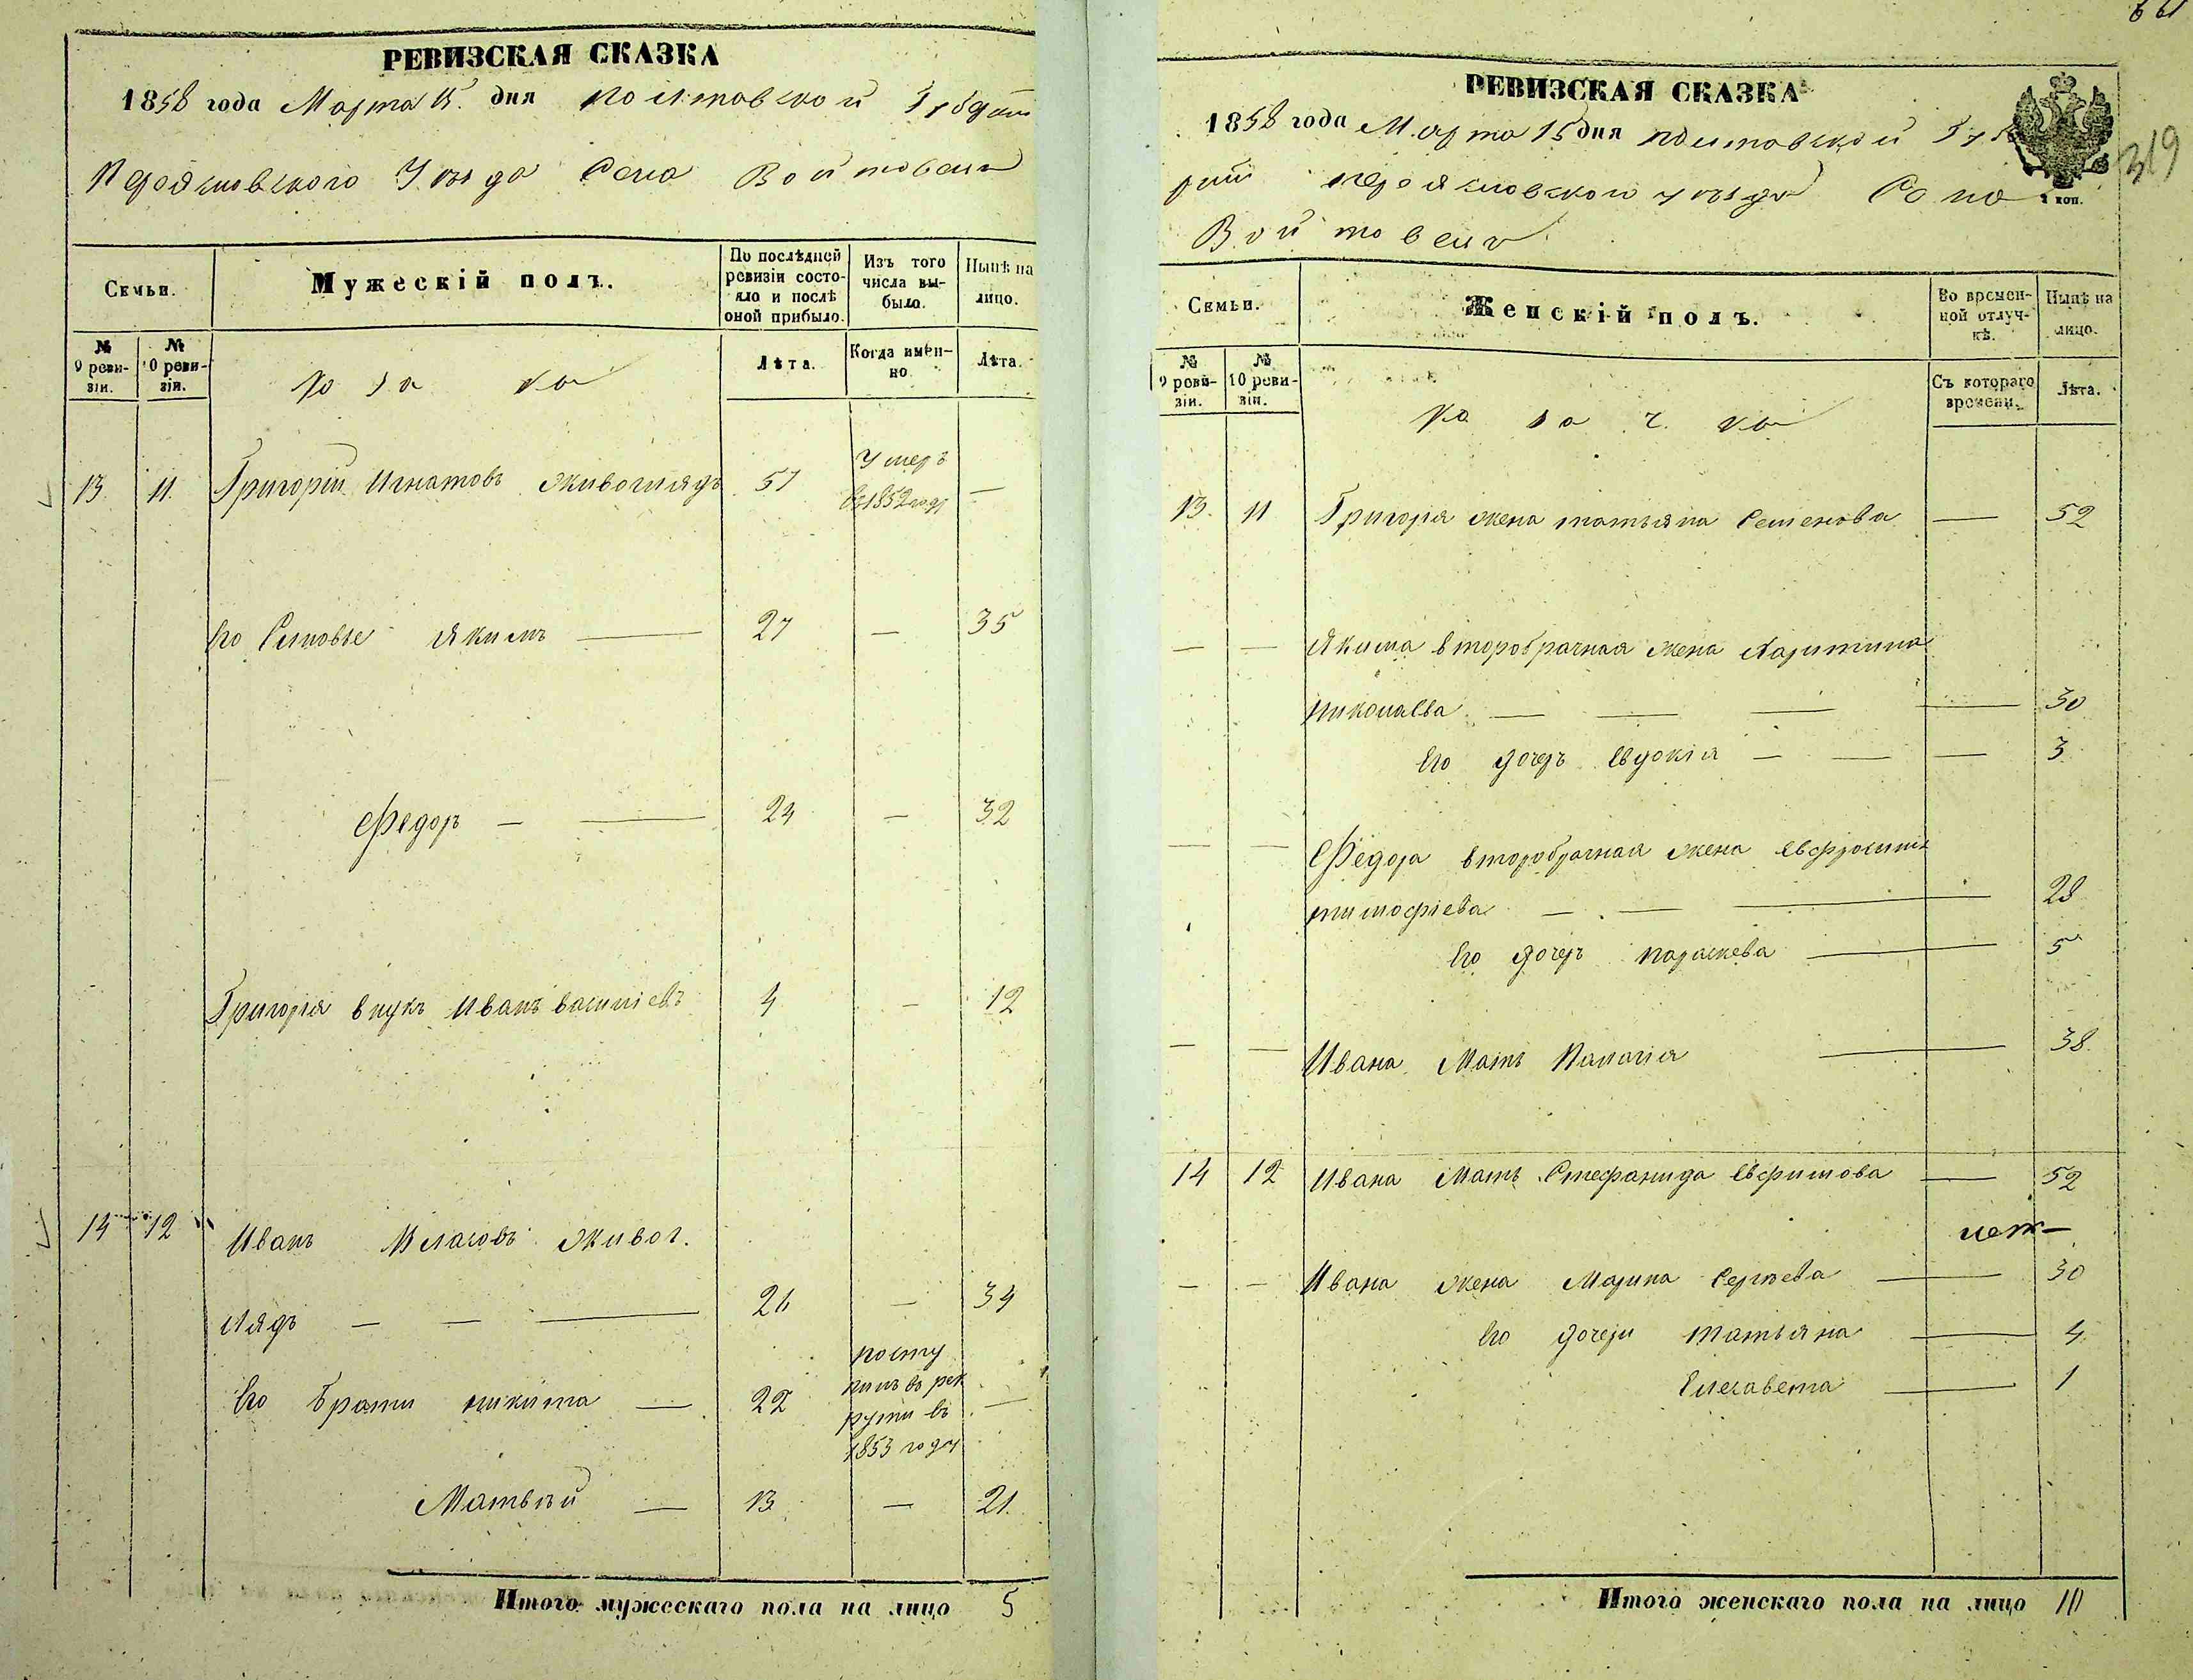 РЕВИЗСКАЯ СКАЗКА
1858 года Марта 15. дня Полтавской Губерніи
Переяславского Уезда Села Войтовецъ
Семьи.
Мужескій полъ.
По послѣдней ревизіи состояло и послѣ оной прибыло.
Изъ того числа выбыло.
Нынѣ на лицо.
№ 9 ревизіи.
№ 10 ревизіи.
Козаки
Лѣта.
Когда именно
Лѣта.
13. 11. Григорій Игнатовъ Живоглядъ 57 Умеръ въ 1852 году —
Его Сыновье Якимъ — 27 — 35
Федоръ — — 24 — 32
Григорія внукъ Иванъ Василіевъ 4 — 12
14 12 Иванъ Власовъ Живог.
лядъ — — — 26 — 34
Его братья Никита — 22 поступилъ въ рекруты въ 1853 году —
Матвѣй — 13 — 21.
Итого мужескаго пола на лицо 5
319
РЕВИЗСКАЯ СКАЗКА
1858 года Марта 15 дня Полтавской Губе
рніи Переяславского уезда Села
1 коп.
Семьи.
Женскій полъ.
Во временной отлучкѣ.
Нынѣ на лицо.
№ 9 ревизіи.
№ 10 ревизіи.
Козачки
Съ котораго времени.
Лѣта.
13. 11 Григорія жена Татьяна Семенова — 52
— — Якима второбрачная жена Харитина
Николаева — — — — 30
Его дочерь Евдокія — — — 3
— — Федора второбрачная жена Евфросинія
Тимофіева — — — 28
Его дочерь Параскева — 5
— — Ивана Мать Палагія — 38.
14 12 Ивана Мать Стефанида Евфимова — 52
Ивана жена Марина Сергѣева — 30
Его дочери Татьяна — 4
Елисавета — 1
Итого женскаго пола на лицо 10